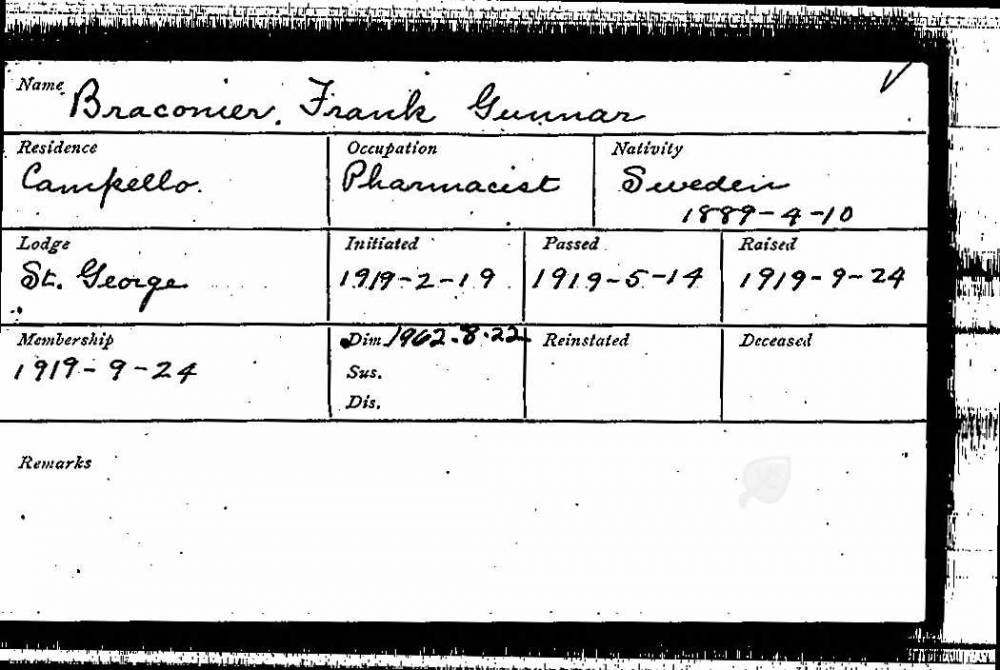 Name Braconier, Frank Gunnar
Residence Occupation Nativity
Campello. Pharmacist Sweden
1889-4-10
Lodge Initiated Passed Raised
St. George 1919-2-19 1919-5-14 1919-9-24
Membership Dim. 1962-8-22 Reinstated Deceased
1919-9-24 Sus.
Dis.
Remarks